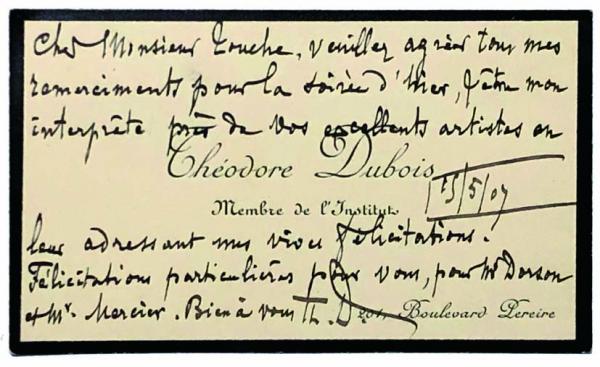 Cher Monsieur Touche, veuillez agréer tous mes
remerciments pour la soirée d'hier, & être mon
interprète près de vos excellents artistes en
Théodore Dubois
Membre de l'Institut
15/5/07
leur adressant mes vives félicitations.
Félicitations particulières pour vous, pour Mr Dorson
et Mr. Mercier. Bien à vous Th. D
201, Boulevard Pereire